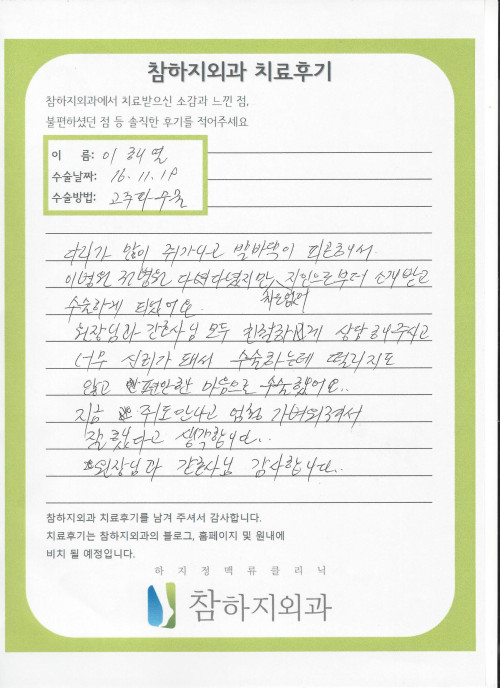 참하지외과 치료후기
참하지외과에서 치료받으신 소감과 느낀 점,
불편하셨던 점 등 솔직한 후기를 적어주세요
이 름: 이 해 열
수술날짜: 16. 11. 18
수술방법: 고주파수술
다리가 많이 쥐가나고 발바닥이 피곤해서
이병원 저병원 다녀다녔지만 차도없어 지인으로부터 소개받고
수술하게 되었어요.
원장님과 간호사님 모두 친절하게 상담해주시고
너무 신뢰가 돼서 수술하는데 떨리지도
않고 편안한 마음으로 수술했어요..
지금 쥐도안나고 엄청 가벼워져서
잘했다고 생각합니다..
원장님과 간호사님 감사합니다..
참하지외과 치료후기를 남겨 주셔서 감사합니다.
치료후기는 참하지외과의 블로그, 홈페이지 및 원내에
비치 될 예정입니다.
하지정맥류클리닉
참하지외과